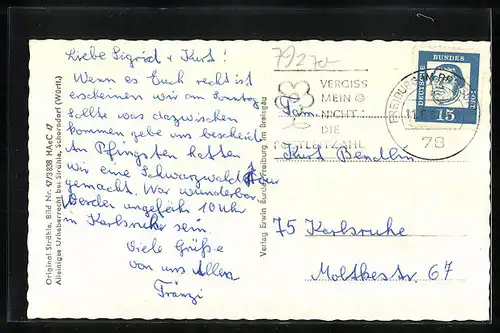 7927a
Liebe Sigrid + Kurt!
Wenn es Euch recht ist
erscheinen wir am Sonntag
sollte was dazwischen
kommen gebe uns bescheid.
An Pfingsten hatten
wir eine Schwarzwald Tour
gemacht. War wunderbar
Werden ungefähr 10 Uhr
in Karlsruhe sein.
Viele Grüße
von uns Allen
Fränzi
Original Strähle, Bild Nr.
Alleiniges Urheberrecht bei Strähle, Schorndorf (Württ.)
Verlag Erwin Burda, Freiburg im Breisgau
VERGISS
MEIN
NICHT
DIE
POSTLEITZAHL
FREIBURG
78
DEUTSCHE
BUNDES
POST
15
Fam.
Kurt Bendlin
75 Karlsruhe
Moltkestr. 67